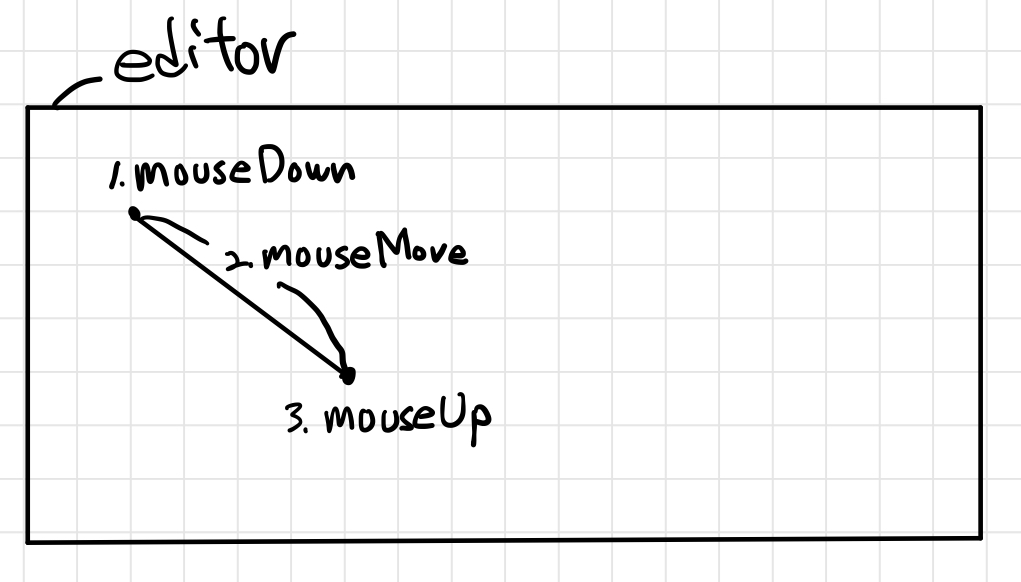 editor
1. mouseDown
2. mouseMove
3. mouseUp